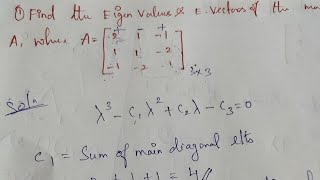 ① Find the Eigen Values & E. Vectors of the ma
A, where A = [2 1 -1
1 1 -2
-1 -2 1] 3x3
Soln
λ³ - C₁λ² + C₂λ - C₃ = 0
C₁ = Sum of main diagonal elts
+ 1 + 1 = 4